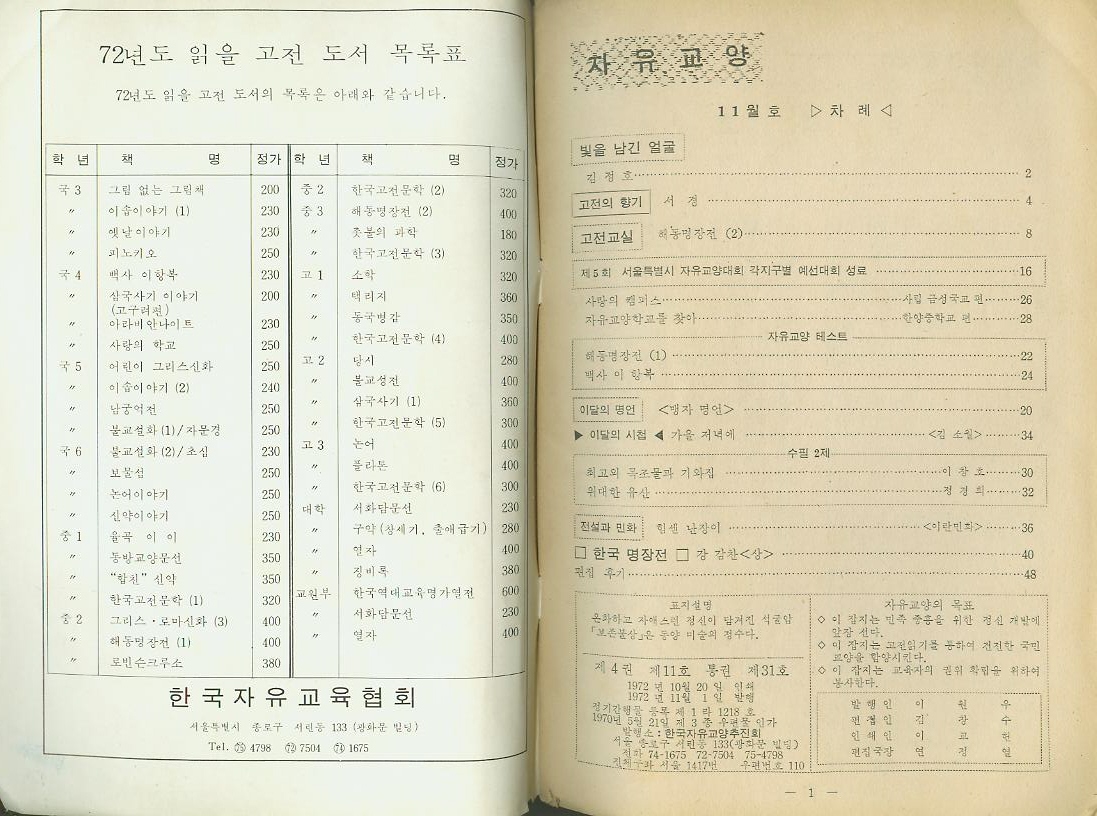 72년도 읽을 고전 도서 목록표
72년도 읽을 고전 도서의 목록은 아래와 같습니다.
학 년 책 명 정가 학 년 책 명 정가
국 3 그림 없는 그림책 200 중 2 한국고전문학 (2) 320
〃 이솝이야기 (1) 230 중 3 해동명장전 (2) 400
〃 옛날이야기 230 〃 촛불의 과학 180
〃 피노키오 250 〃 한국고전문학 (3) 320
국 4 백사 이항복 230 고 1 소학 320
〃 삼국사기 이야기 200 〃 택리지 360
(고구려편)
〃 아라비안나이트 230 〃 동국병감 350
〃 사랑의 학교 250 〃 한국고전문학 (4) 400
국 5 어린이 그리스신화 250 고 2 당시 280
〃 이솝이야기 (2) 240 〃 불교성전 400
〃 남궁억전 250 〃 삼국사기 (1) 360
〃 불교설화 (1)/자문경 250 〃 한국고전문학 (5) 300
국 6 불교설화 (2)/초심 230 고 3 논어 400
〃 보물섬 250 〃 플라톤 400
〃 논어이야기 250 〃 한국고전문학 (6) 300
〃 신약이야기 250 대학 서화담문선 230
중 1 율곡 이 이 230 〃 구약 (창세기, 출애굽기) 280
〃 동방교양문선 350 〃 열자 400
〃 "합친" 신약 350 〃 징비록 380
〃 한국고전문학 (1) 320 교원부 한국역대교육명가열전 600
중 2 그리스·로마신화 (3) 400 〃 서화담문선 230
〃 해동명장전 (1) 400 〃 열자 400
〃 로빈슨크루소 380
한국자유교육협회
서울특별시 종로구 서린동 133 (광화문 빌딩)
Tel. ㉕ 4798 72 7504 74 1675
자유교양
11월호 ▷차 례◁
빛을 남긴 얼굴
김 정 호 2
고전의 향기 서 경 4
고전교실 해동명장전 (2) 8
제5회 서울특별시 자유교양대회 각지구별 예선대회 성료 16
사랑의 캠퍼스 사립 금성국교 편 26
자유교양학교를 찾아 한양중학교 편 28
자유교양 테스트
해동명장전 (1) 22
백사 이 항복 24
이달의 명언 <맹자 명언> 20
▶ 이달의 시첩 ◀ 가을 저녁에 <김 소월> 34
수필 2제
최고의 목조물과 기화집 이 창 호 30
위대한 유산 정 경 희 32
전설과 민화 힘센 난장이 <이란민화> 36
□ 한국 명장전 □ 강 감찬<상> 40
편집 후기 48
표지설명
온화하고 자애스런 정신이 담겨진 석굴암
「보존불상」은 동양 미술의 정수다.
제 4 권 제11호 통권 제31호
1972 년 10월 20 일 인쇄
1972 년 11월 1 일 발행
정기간행물 등록 제 1 라 1218 호
1970년 5월 21일 제 3 종 우편물 인가
발행소 : 한국자유교양추진회
서울 종로구 서린동 133(광화문 빌딩)
전화 74-1675 72-7504 75-4798
진체구좌 서울 1417번 우편번호 110
자유교양의 목표
◇ 이 잡지는 민족 중흥을 위한 정신 개발에
앞장 선다.
◇ 이 잡지는 고전읽기를 통하여 건전한 국민
교양을 함양시킨다.
◇ 이 잡지는 교육자의 권위 확립을 위하여
봉사한다.
발 행 인 이 원 우
편 집 인 김 창 수
인 쇄 인 이 교 허
편집국장 연 정 열
— 1 —